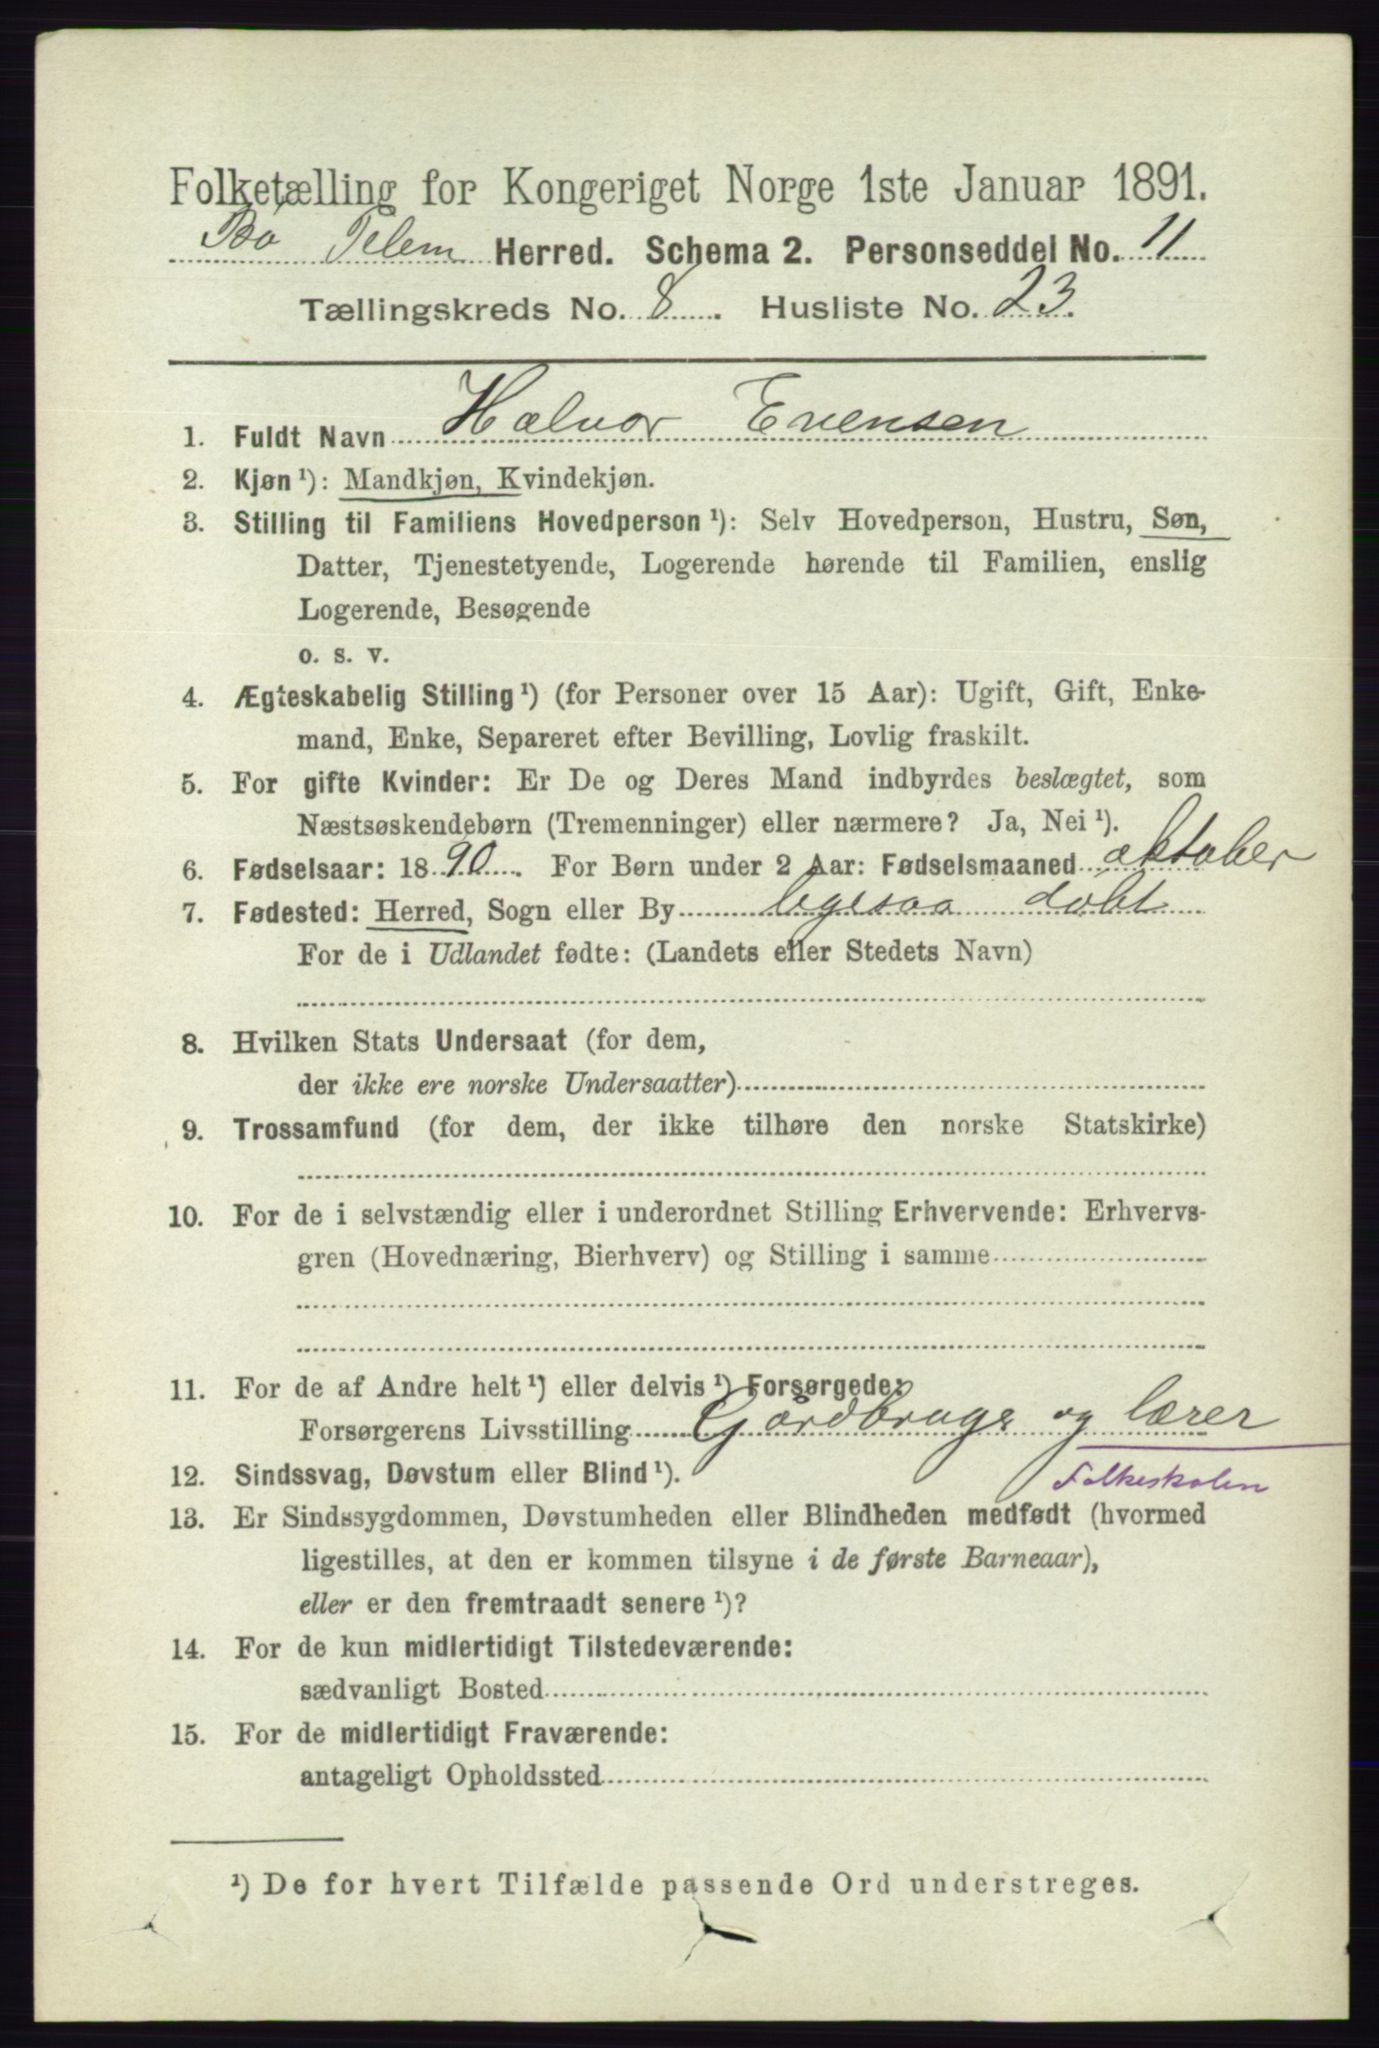 Folketælling for Kongeriget Norge 1ste Januar 1891.
Bø Telem Herred. Schema 2. Personseddel No. 11
Tællingskreds No. 8. Husliste No. 23.
1. Fuldt Navn Halvor Evensen
2. Kjøn ¹): Mandkjøn, Kvindekjøn.
3. Stilling til Familiens Hovedperson ¹): Selv Hovedperson, Hustru, Søn,
Datter, Tjenestetyende, Logerende hørende til Familien, enslig
Logerende, Besøgende
o. s. v.
4. Ægteskabelig Stilling ¹) (for Personer over 15 Aar): Ugift, Gift, Enke-
mand, Enke, Separeret efter Bevilling, Lovlig fraskilt.
5. For gifte Kvinder: Er De og Deres Mand indbyrdes beslægtet, som
Næstsøskendebørn (Tremenninger) eller nærmere? Ja, Nei ¹).
6. Fødselsaar: 1890. For Børn under 2 Aar: Fødselsmaaned oktober
7. Fødested: Herred, Sogn eller By ligesaa døbt
For de i Udlandet fødte: (Landets eller Stedets Navn)
8. Hvilken Stats Undersaat (for dem,
der ikke ere norske Undersaatter)
9. Trossamfund (for dem, der ikke tilhøre den norske Statskirke)
10. For de i selvstændig eller i underordnet Stilling Erhvervende: Erhvervs-
gren (Hovednæring, Bierhverv) og Stilling i samme
11. For de af Andre helt ¹) eller delvis ¹) Forsørgede:
Forsørgerens Livsstilling Gårdbruge og lærer
12. Sindssvag, Døvstum eller Blind ¹). Folkeskolen
13. Er Sindssygdommen, Døvstumheden eller Blindheden medfødt (hvormed
ligestilles, at den er kommen tilsyne i de første Barneaar),
eller er den fremtraadt senere ¹)?
14. For de kun midlertidigt Tilstedeværende:
sædvanligt Bosted
15. For de midlertidigt Fraværende:
antageligt Opholdssted
¹) De for hvert Tilfælde passende Ord understreges.